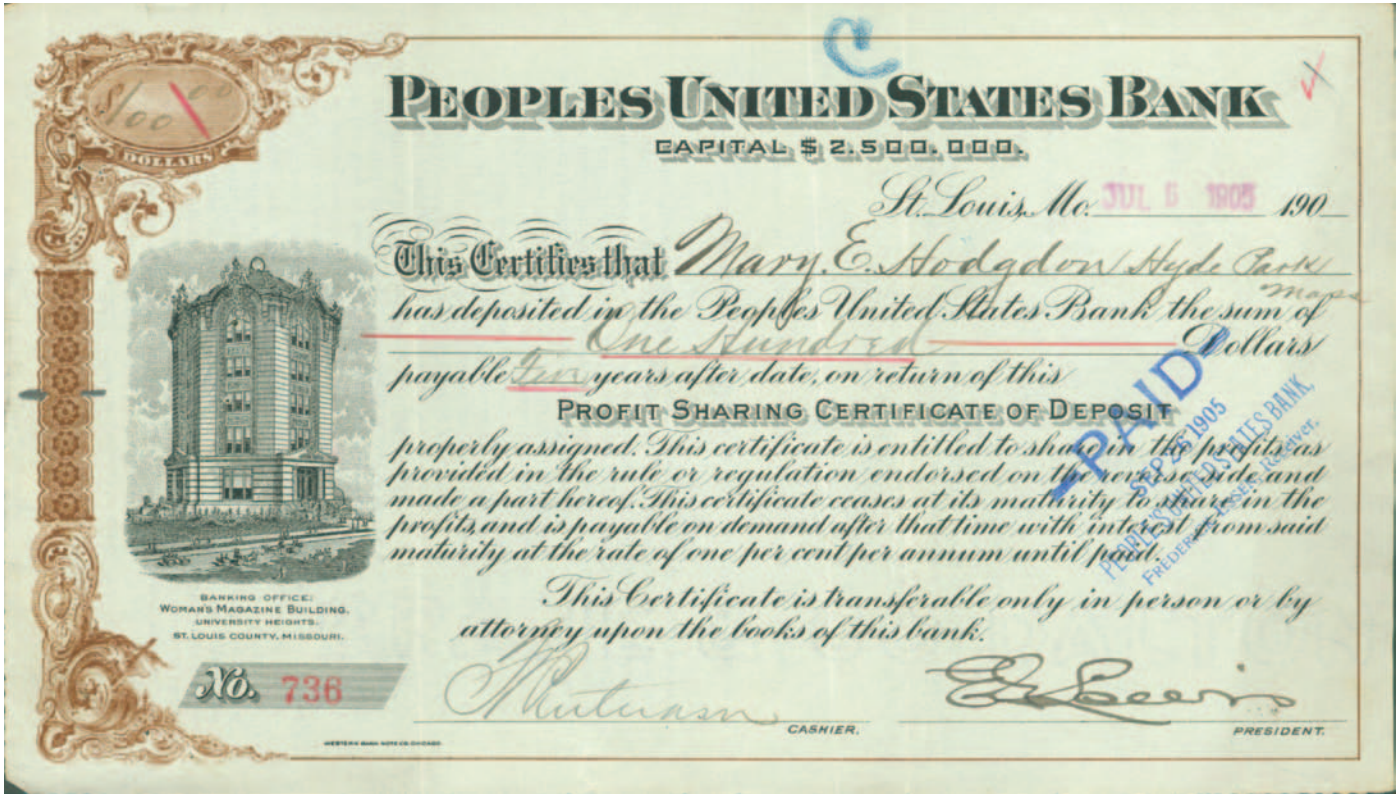 C
$100 00
DOLLARS
PEOPLES UNITED STATES BANK
CAPITAL $2.500.000.
St. Louis, Mo. JUL 5 1905 190
This Certifies that Mary. E. Hodgdon Hyde Park
Mass
has deposited in the Peoples United States Bank the sum of
One Hundred Dollars
payable years after date, on return of this
PROFIT SHARING CERTIFICATE OF DEPOSIT
properly assigned. This certificate is entitled to share in the profits as
provided in the rule or regulation endorsed on the reverse side and
made a part hereof. This certificate ceases at its maturity to share in the
profits, and is payable on demand after that time with interest from said
maturity at the rate of one per cent per annum until paid.
This Certificate is transferable only in person or by
attorney upon the books of this bank.
PAID
SEP 1905
PEOPLE'S UNITED STATES BANK,
FREDERICK ESSEN, Receiver.
BANKING OFFICE:
WOMAN'S MAGAZINE BUILDING.
UNIVERSITY HEIGHTS.
ST. LOUIS COUNTY, MISSOURI.
No. 736
E G Lewis
CASHIER.
PRESIDENT.
WESTERN BANK NOTE CO. CHICAGO.